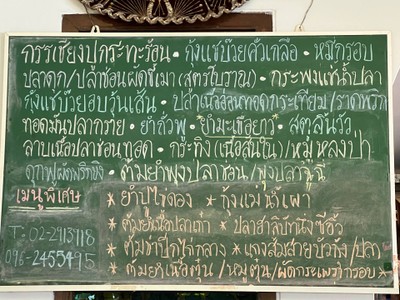 กรรเชียงปูกระทะร้อน • กุ้งแช่บ๊วยคั่วเกลือ • หมี่กรอบ
ปลาดุก/ปลาช่อนผัดขี้เมา (สูตรโบราณ) • กระพงแช่น้ำปลา
กุ้งแช่บ๊วยอบวุ้นเส้น • ปลาเนื้ออ่อนทอดกระเทียม/ราดพริก
ทอดมันปลากราย • ยำถั่วพู • ยำมะเขือยาว • สตูลิ้นวัว
ลาบเนื้อปลาช่อนทอด • กระทิง (เนื้อสันใน)/หมูหลงป่า
ดุกฟูผัดพริกขิง • ต้มยำพุงปลาช่อน/พุงปลาฉู่ฉี่
เมนูพิเศษ * ยำปูไข่ดอง * กุ้งแม่น้ำเผา
* ต้มยำเนื้อปลาเต๋า * ปลาสำลีบกนึ่งซีอิ๊ว
T: 02-2415118 * ต้มขาไก่ไฟกลาง * แกงส้มสายบัวกุ้ง/ปลา
096-2455495 * ต้มยำเนื้อตุ๋น/หมูตุ๋น/ผัดกระเพรากรอบ *